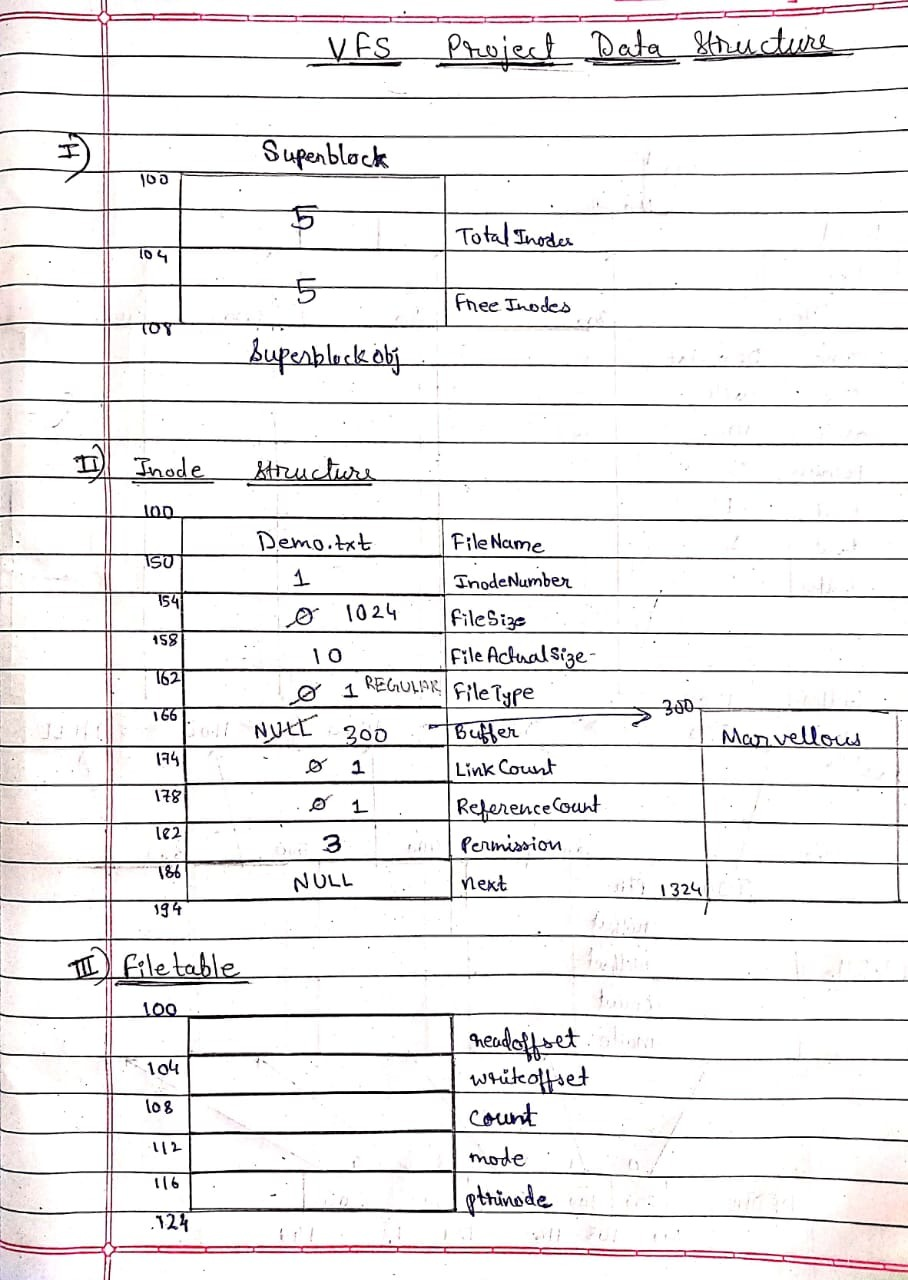 VFS Project Data Structure
I) Superblock
100
5 Total Inodes
104
5 Free Inodes
108
Superblock obj
II) Inode Structure
100
Demo.txt FileName
150
1 InodeNumber
154
0 1024 FileSize
158
10 FileActualSize
162
0 1 REGULAR FileType
166 300
NULL 300 Buffer Marvellous
174
0 1 LinkCount
178
0 1 ReferenceCount
182
3 Permission
186
NULL next 1324
194
III) Filetable
100
readoffset
104
writeoffset
108
Count
112
mode
116
ptrinode
124